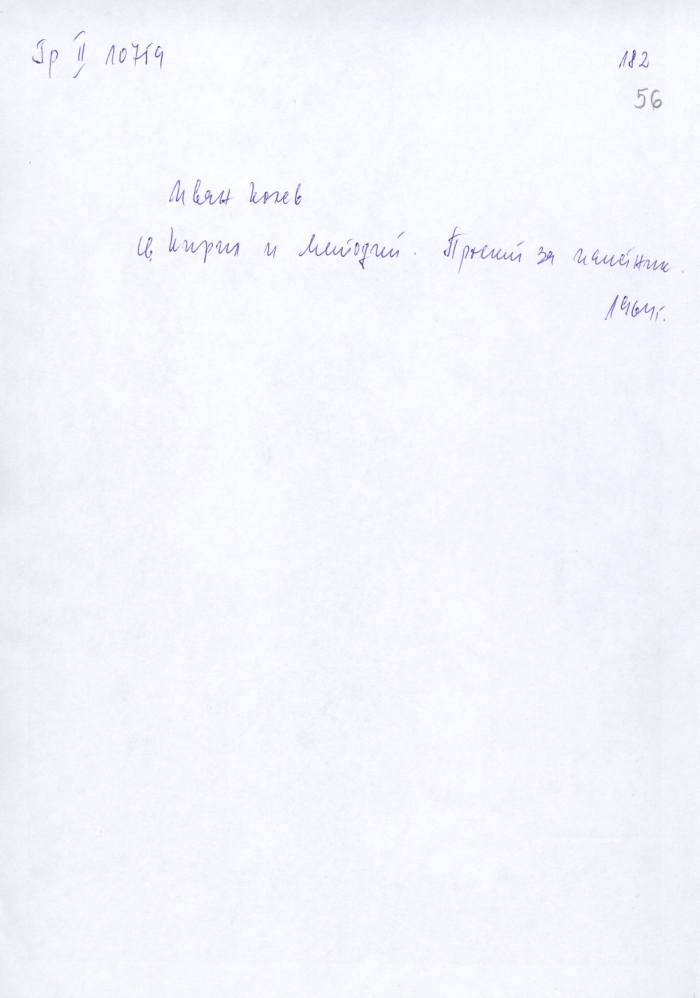 Гр II 10759
182
56
Иван Колев
Кирил и Методий. Проект за паметник.
1964г.